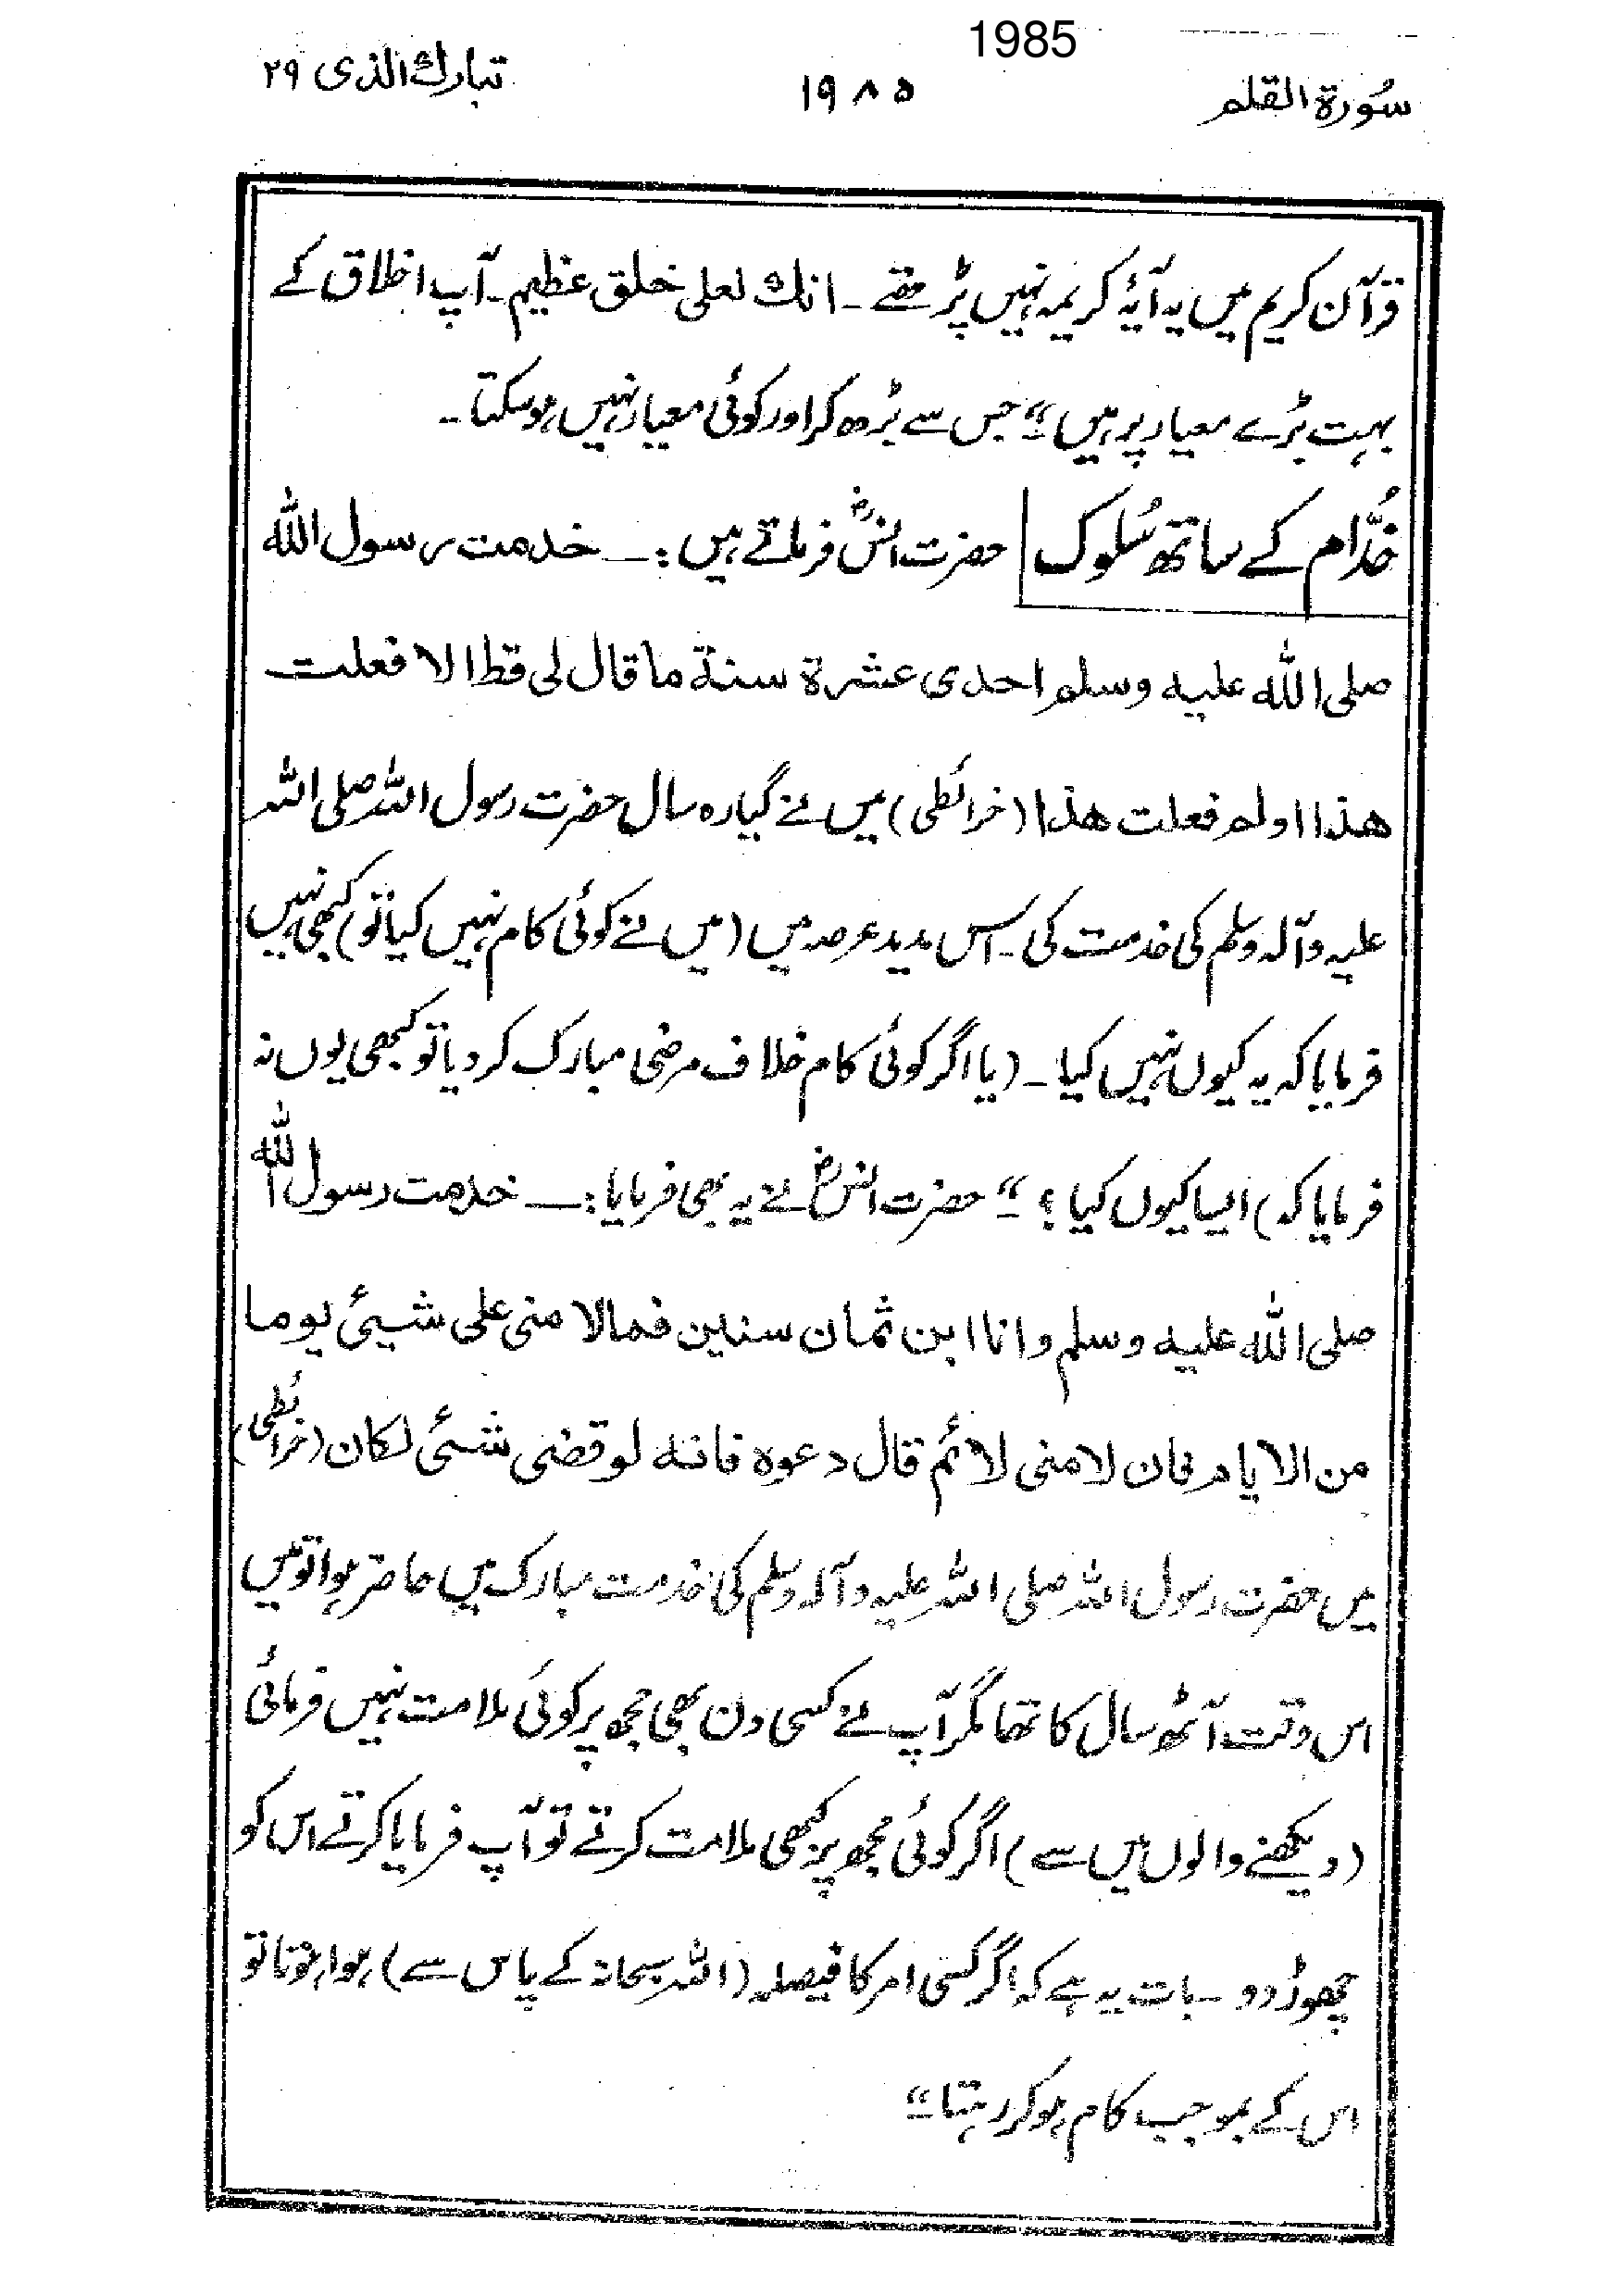 1985
سُورة القلم ۱۹۸۵ تبارك الذی ۲۹
قرآن کریم میں یہ آیۂ کریمہ نہیں پڑھتے ۔ انك لعلی خلق عظیم ۔ آپ اخلاق کے
بہت بڑے معیار پر ہیں“ جس سے بڑھ کر اور کوئی معیار نہیں ہو سکتا ۔
خُدّام کے ساتھ سُلوک حضرت انسؓ فرماتے ہیں :— خدمت رسول الله
صلی الله علیه وسلم احدی عشرة سنة ما قال لی قط الا فعلت
هذا اولم فعلت هذا (خرائطی) میں نے گیارہ سال حضرت رسول اللہ صلی اللہ
علیہ وآلہ وسلم کی خدمت کی ۔ اس مدید عرصہ میں (میں نے کوئی کام نہیں کیا تو) کبھی نہیں
فرمایا کہ یہ کیوں نہیں کیا ۔ (یا اگر کوئی کام خلاف مرضی مبارک کر دیا تو کبھی یوں نہ
فرمایا کہ) ایسا کیوں کیا ؟“ حضرت انسؓ نے یہ بھی فرمایا :— خدمت رسول الله
صلی الله علیه وسلم وانا ابن ثمان سنین فما لامنی علی شیئ یوما
من الایام فان لامنی لائم قال دعوه فانه لو قضی شیئ لکان (خرائطی)
میں حضرت رسول اللہ صلی اللہ علیہ وآلہ وسلم کی خدمت مبارک میں حاضر ہوا تو میں
اس وقت آٹھ سال کا تھا مگر آپ نے کسی دن بھی مجھ پر کوئی ملامت نہیں فرمائی
(دیکھنے والوں میں سے) اگر کوئی مجھ پر کبھی ملامت کرتے تو آپ فرمایا کرتے اس کو
چھوڑ دو ۔ بات یہ ہے کہ اگر کسی امر کا فیصلہ (اللہ سبحانہ کے پاس سے) ہوا ہوتا تو
اس کے بموجب کام ہو کر رہتا“